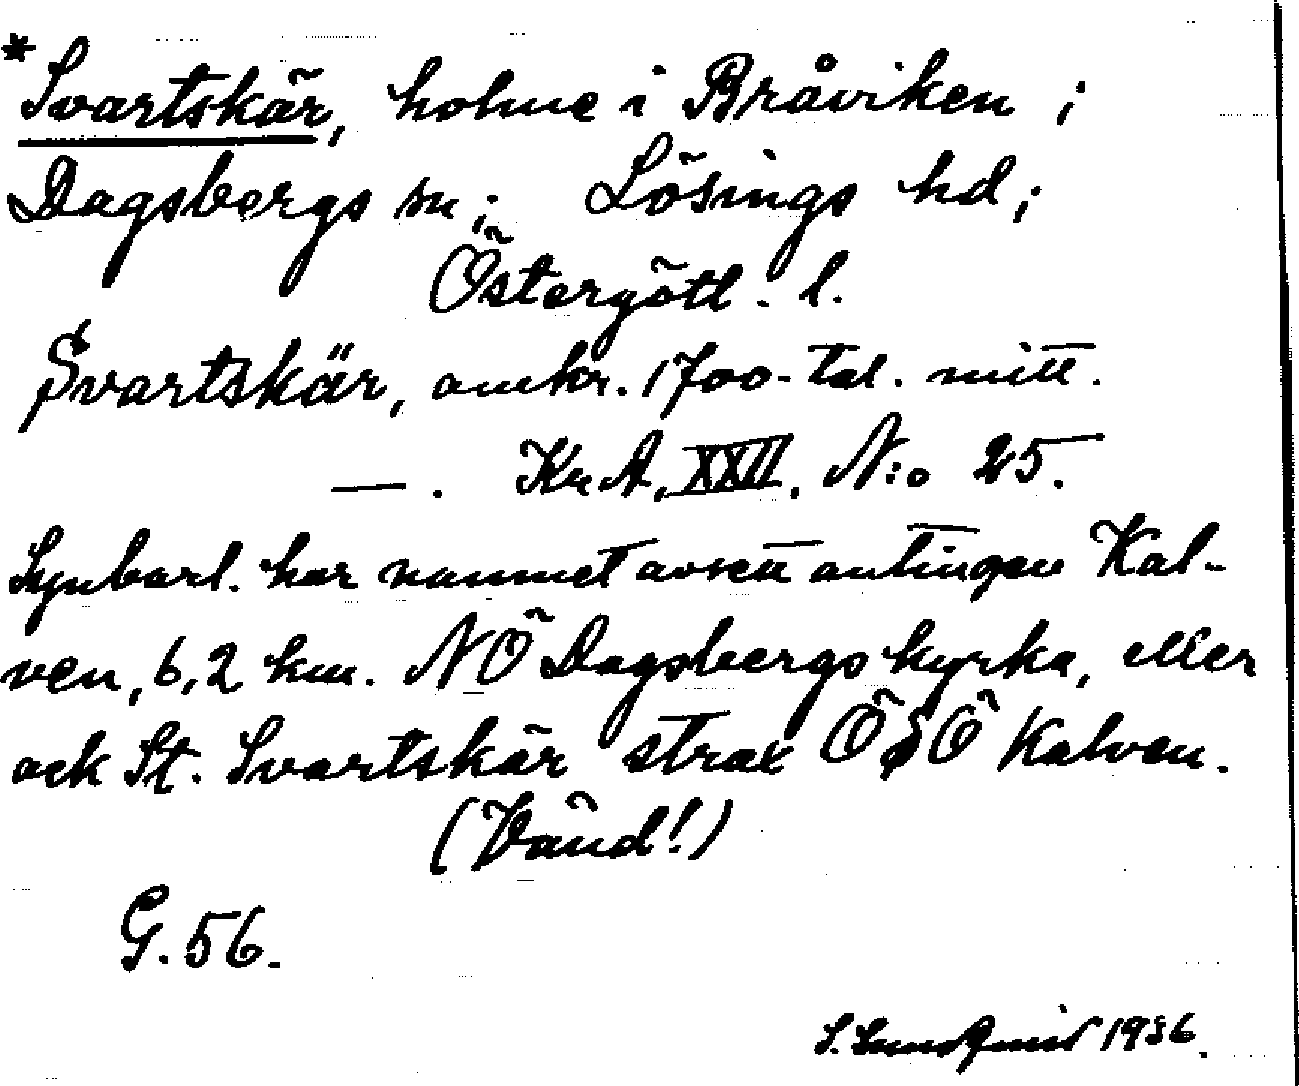 *Svartskär, holme i Bråviken i
Dagsbergs sn; Lösings hd;
Östergötl. l.
Svartskär, omkr. 1700-tal. mitt.
—. Kr A, XXII, N:o 25.
Synbarl. har namnet avsett antingen Kal-
ven, 6,2 km. NÖ Dagsbergs kyrka, eller
ock St. Svartskär strax ÖSÖ Kalven.
(Vänd!)
G. 56.
S. Sundquist 1936.